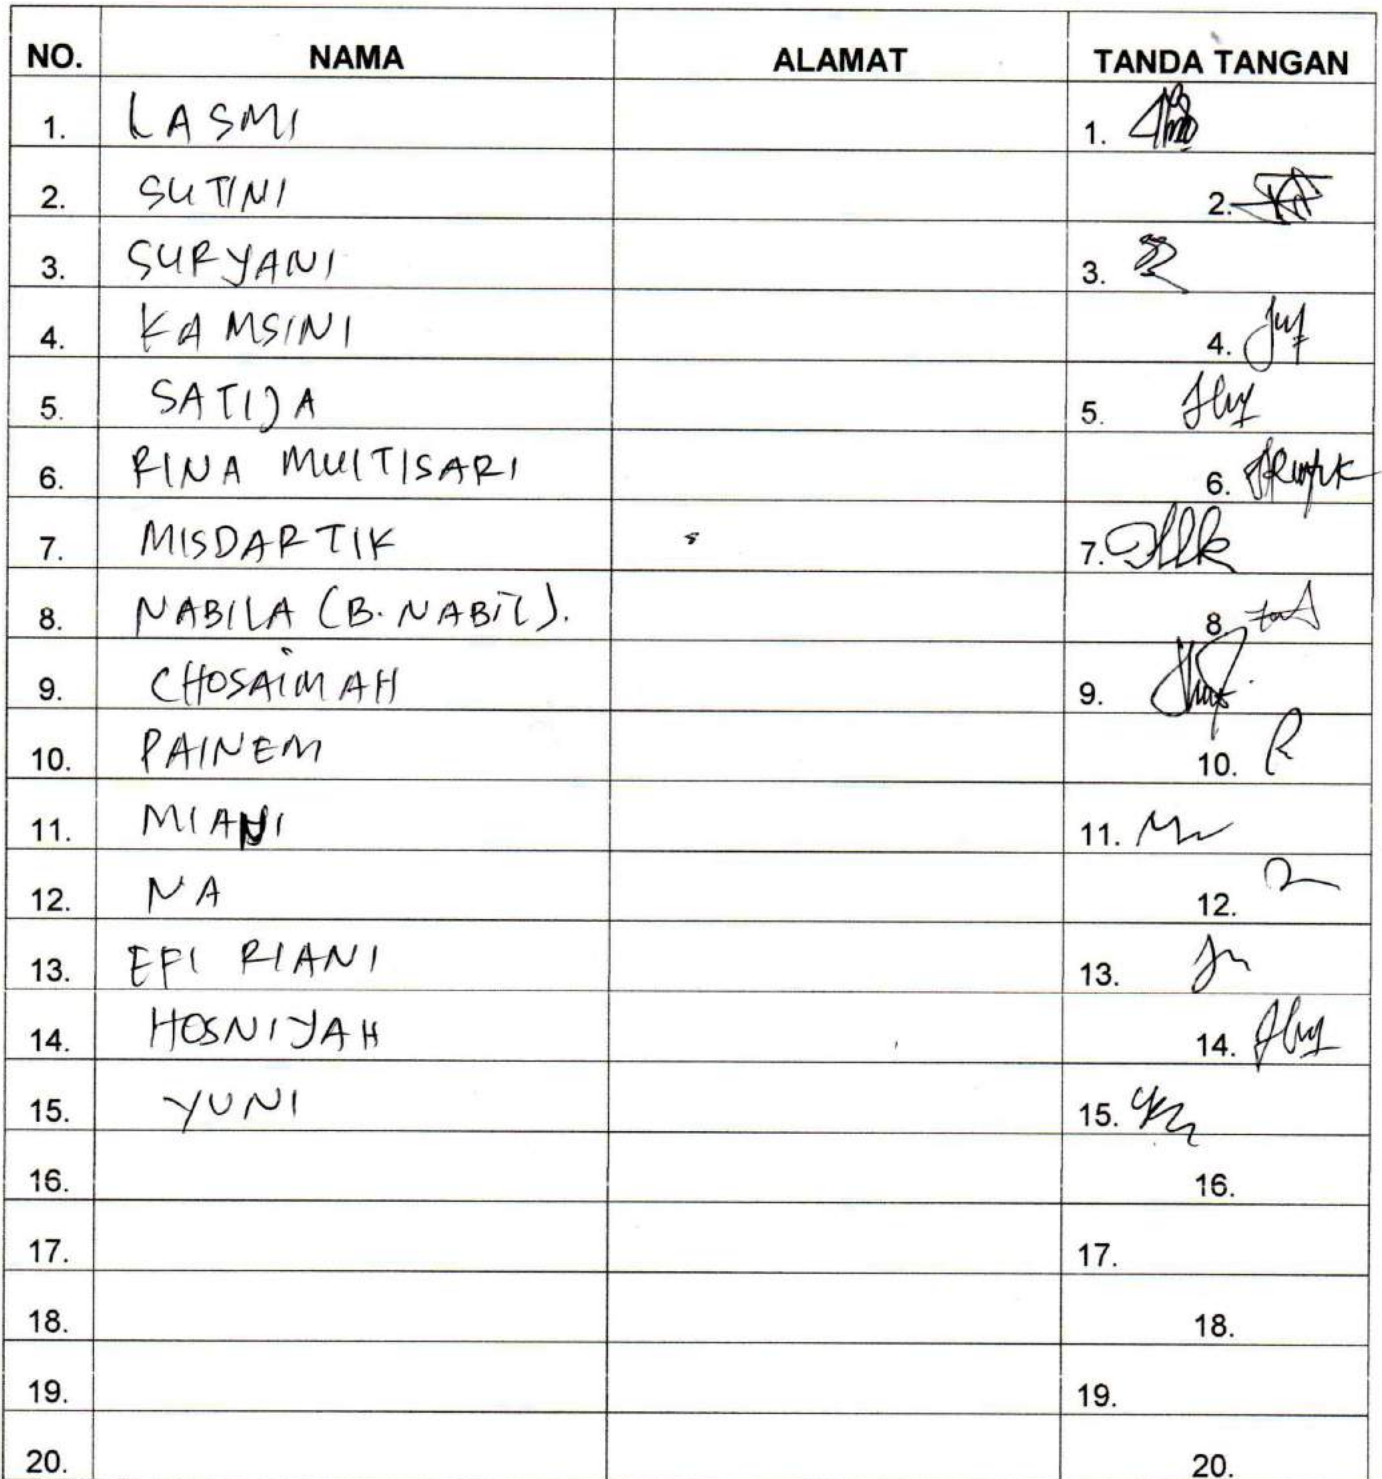 NO. NAMA ALAMAT TANDA TANGAN
1. LASMI 1.
2. SUTINI 2.
3. SURYANI 3.
4. KAMSINI 4.
5. SATIJA 5.
6. RINA MULTISARI 6.
7. MISDARTIK 7.
8. NABILA (B. NABIL). 8
9. CHOSAIMAH 9.
10. PAINEM 10.
11. MIANI 11.
12. NA 12.
13. EFI RIANI 13.
14. HOSNIYAH 14.
15. YUNI 15.
16. 16.
17. 17.
18. 18.
19. 19.
20. 20.